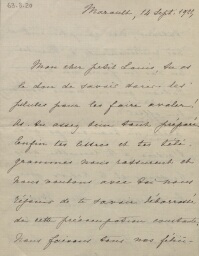 Mon cher petit Louis, tu as
le don de savoir dorer les
pilules pour les faire avaler!
As tu assez bien tout préparé
Enfin tes lettres et tes télé-
grammes nous rassurent et
nous voulons avec toi nous
réjouir de te savoir débarrassé
de cette préoccupation constante.
Nous formons tous nos félici-